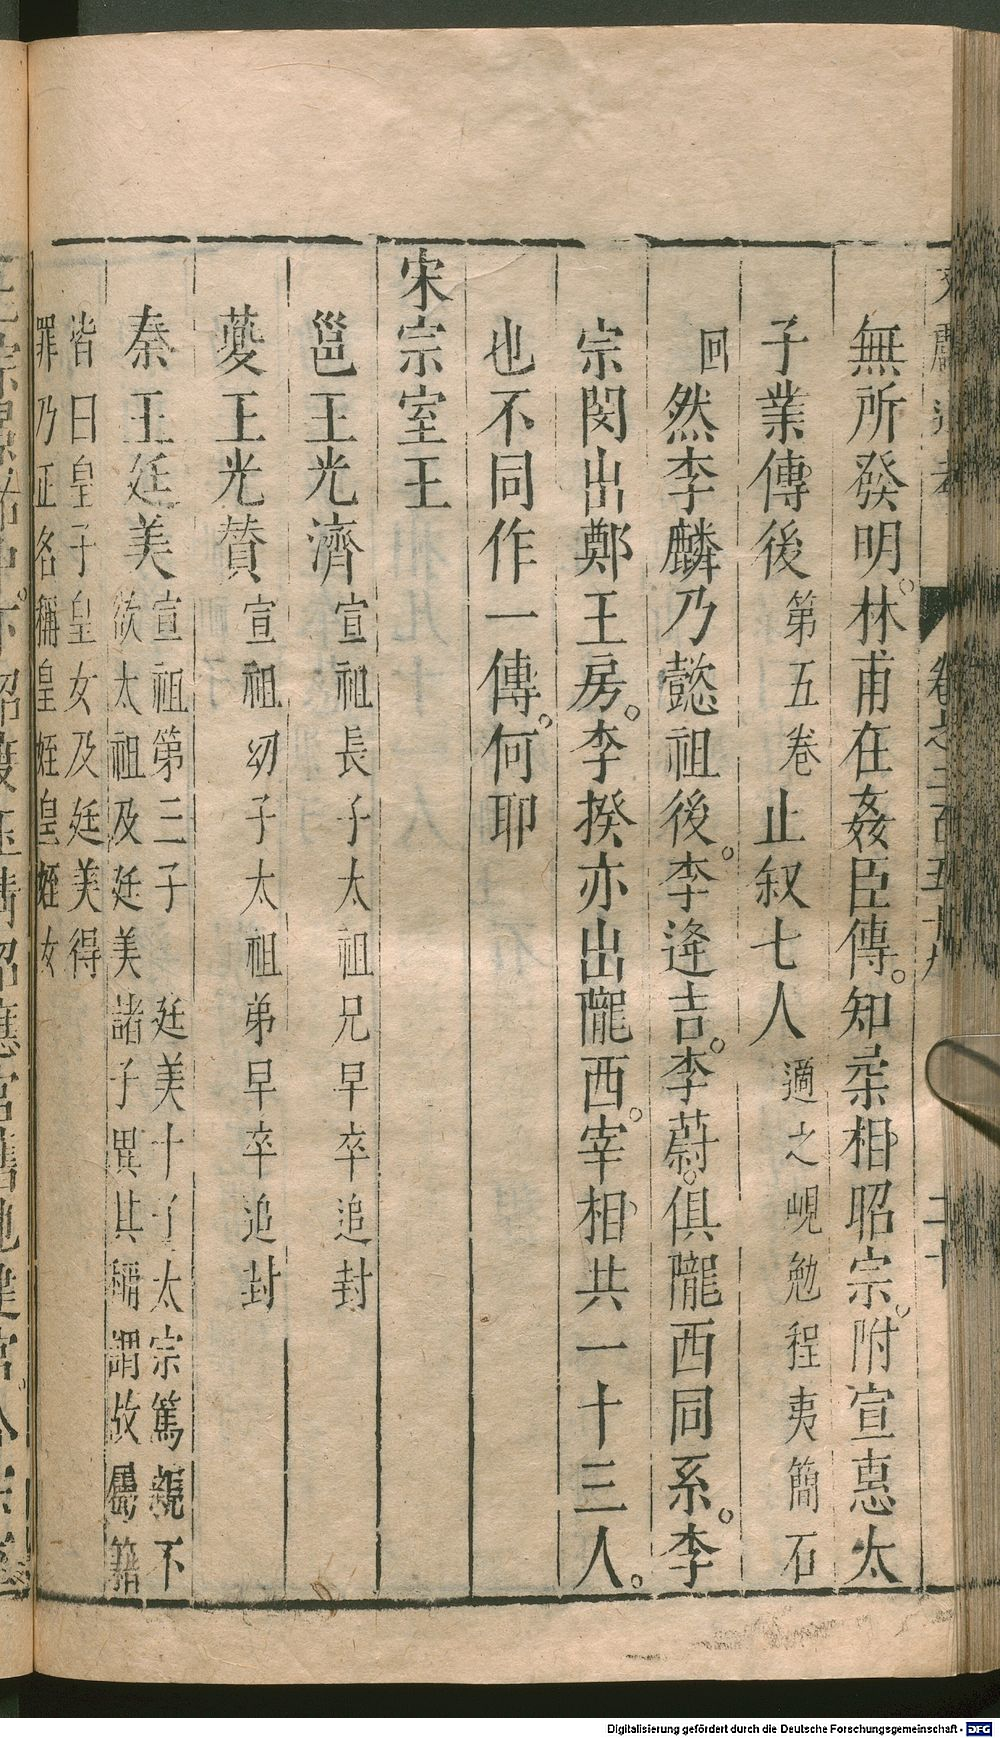 無所發明林甫在姦臣傳知柔相昭宗附宣惠太
子業傳後第五卷止叙七人適之峴勉程夷簡石
回然李麟乃懿祖後李逢吉李蔚俱隴西同系李
宗閔出鄭王房李揆亦出隴西宰相共一十三人
也不同作一傳何耶
宋宗室王
邕王光濟宣祖長子太祖兄早卒追封
夔王光賛宣祖幼子太祖弟早卒追封
秦王廷美宣祖第三子廷美十子太宗篤親不
欲太祖及廷美諸子異其稱謂故屬籍
皆曰皇子皇女及廷美得
罪乃正名稱皇姪皇姪女
Digitalisierung gefördert durch die Deutsche Forschungsgemeinschaft - DFG